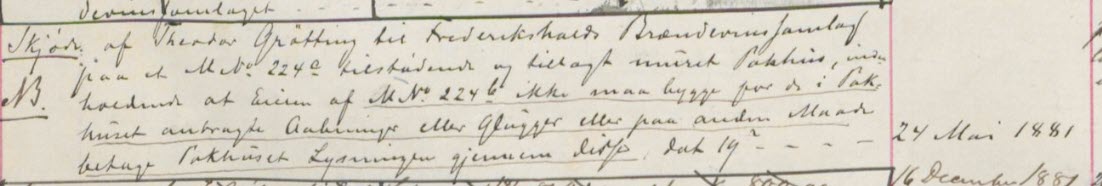 devinssamlaget - - -
Skjøde af Theodor Grøtting til Frederikshalds Brændevinssamlag
paa et M No. 224a tilstødende og tillagt muret Pakhus, inde-
NB. holdende at Eieren af M No. 224b ikke maa bygge for de i Pak-
huset anbragte Aabninger eller Glugger eller paa anden Maade
betage Pakhuset Lysningen gjennem disse, dat 19 - - - - 24 Mai 1881
16 December 1881